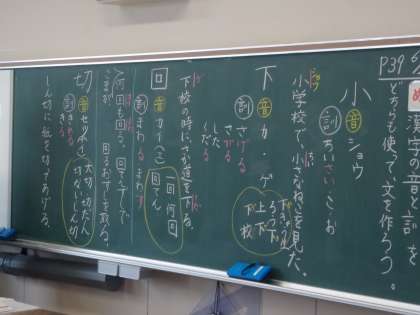 P39
め 漢字の音と訓を
どちらも使って、文を作ろう。
小
音 ショウ
訓 ちいさい・こ・お
小学校で、小さなねこを見た。
下
音 カ ゲ
訓 さげる
さがる
くだる
した
下校
上下
下校の時に、さか道を下る。
回
音 カイ(エ)
訓 まわる まわす
一回 何回
回てん
何回も回る、回てんずしで
こまが
回るおすしを取る。
切
音 セツ(サイ)
訓 きれる
きる
大切 切だん
しん切
しん切に紙を切ってあげる。